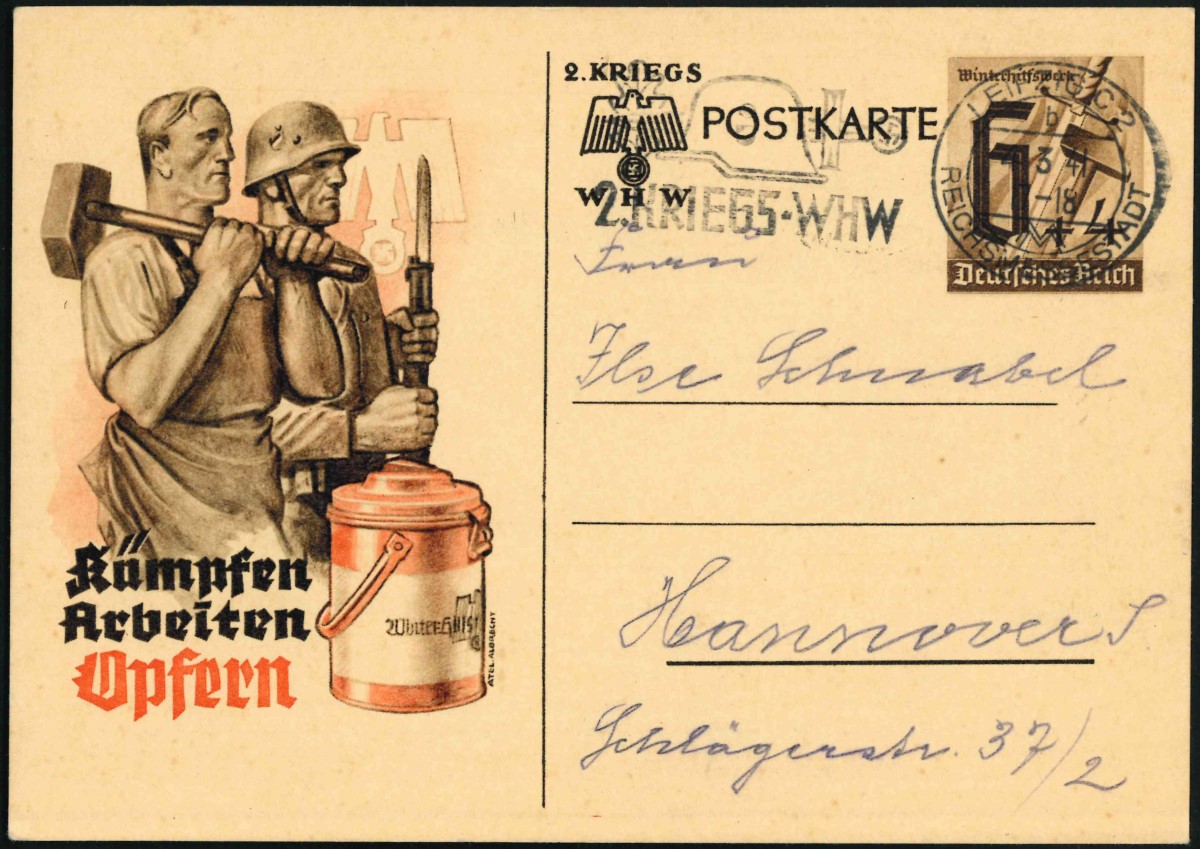 Kämpfen
Arbeiten
Opfern
Winterhilfs
ATEL. ALBRECHT
2. KRIEGS
W H W
POSTKARTE
2. KRIEGS-WHW
Winterhilfswerk
6+4
Deutsches Reich
LEIPZIG C 2
b
3 41
-18
REICHSMESSESTADT
Frau
Ilse Schnabel
Hannover S
Schlägerstr. 37/2